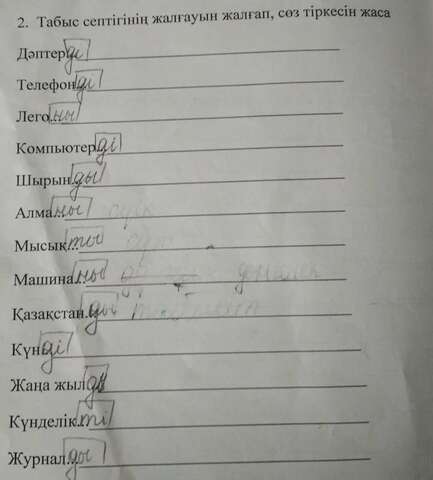 2. Табыс септігінің жалғауын жалғап, сөз тіркесін жаса
Дәптерді
Телефонді
Легоны
Компьютерді
Шырынды
Алма..ны
Мысық..ты
Машина..ны
Қазақстан..ды
Күнді
Жаңа жылды
Күнделік..ті
Журнал..ды